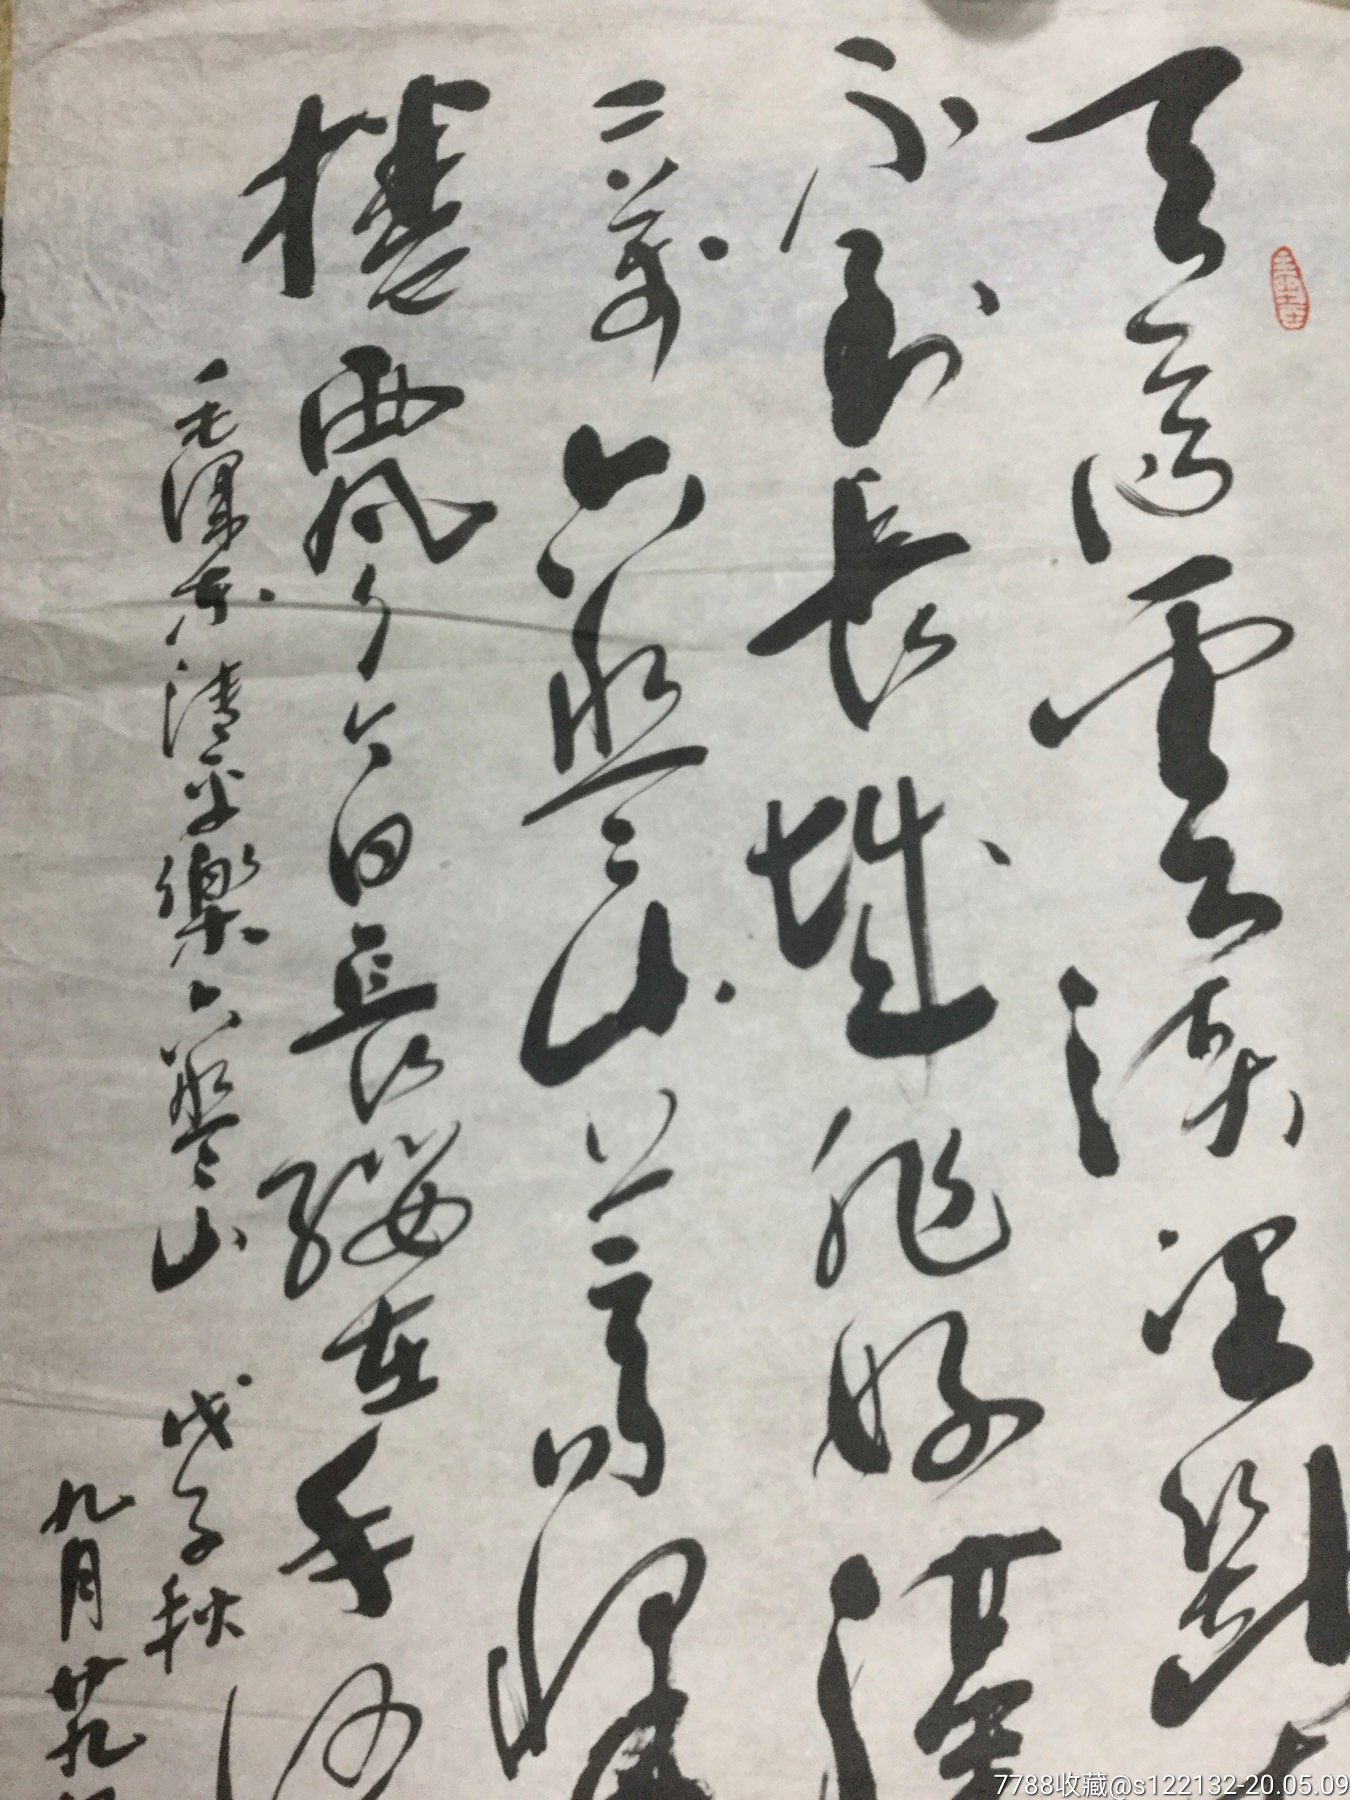 天高雲淡望斷
不到長城非好漢
二萬六盤山上高峰
捲西風今日長纓在手何
毛澤東清平樂六盤山 戊子秋
九月廿九
7788收藏@s122132-20.05.09